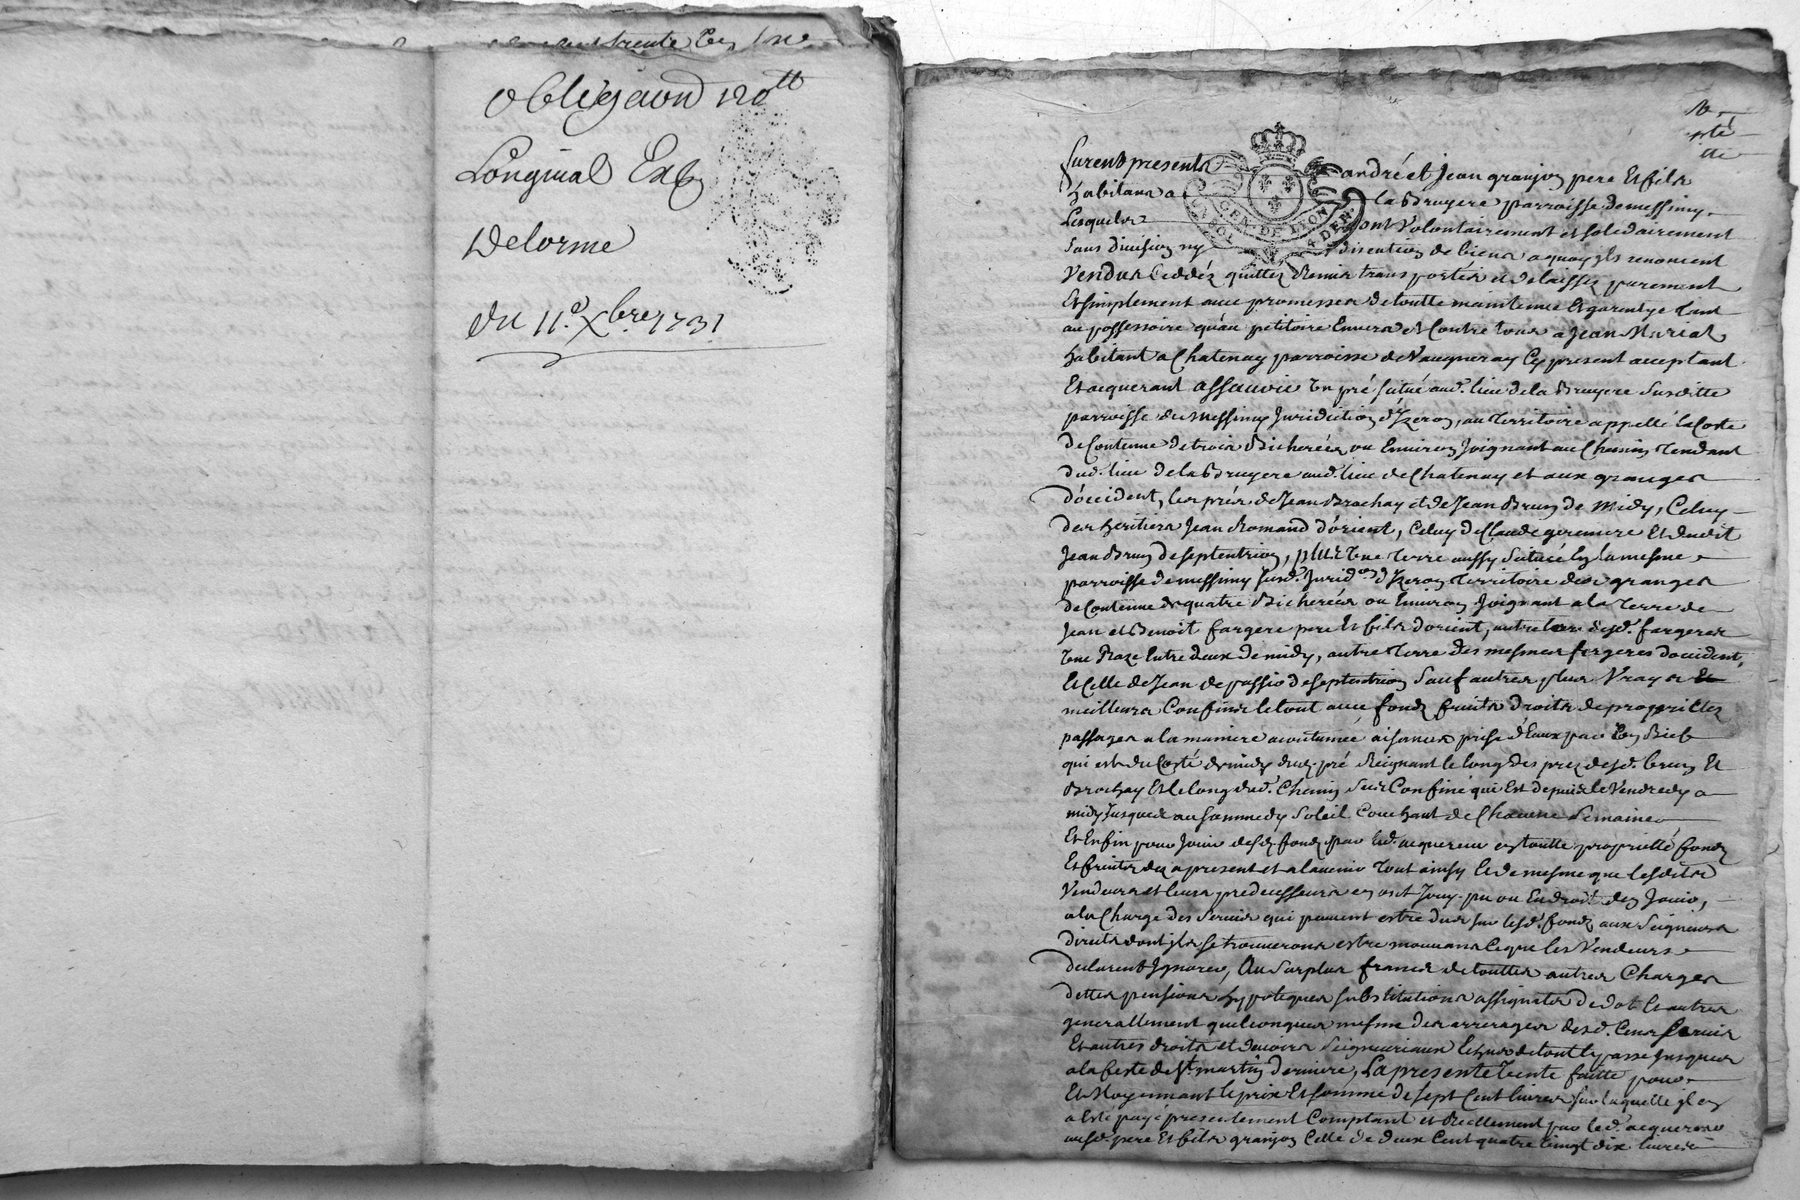 trente Et Une
Obligaon 120tt
Loriginal Exp
Delorme
Du 11e Xbre 1731
furent presents andré et Jean granjon pere Et fils
Habitans a la Bruyere parroisse de messimy
Lesquels ont volontairement et solidairement
sans division ny discution de biens a quoy ils renoncent
Vendus Ceddéz quittez Remis transportés et delaissez purement
Et simplement avec promesses de toutte maintenue Et garentye tant
au possessoire qu'au petitoire Envers et Contre tous a Jean Murial
habitant a Chatenay parroisse de Vaugneray Cy present acceptant
Et acquerant assavoir Un pré situé aud. lieu de la Bruyere susditte
parroisse de Messimy Juridiction d'Izeron, au Territoire appellé la Coste
de Contenue de trois Bicherées ou Environ Joignant au Chemin Tendant
dud. lieu de la Bruyere aud. lieu de Chatenay et aux granges
d'occident, les prés de Jean Brochay et de Jean Brun de midy, Celuy
des heritiers Jean Romand d'orient, Celuy de Claude geremere Et dudit
Jean Brun de septentrion, plus Une Terre aussy situeé En la mesme
parroisse de messimy susd. Jurid.on d'Izeron Territoire des granges
de Contenue de quatre Bicherées ou Environ Joignant a la Terre de
Jean et Benoit fargere pere Et fils d'orient, autre terre desd. fargeres
Une Raze Entre deux de midy, autre Terre des mesmes fargeres d'occident,
Et Celle de Jean de passio de septentrion sauf autres plus Vrays Et
meilleurs Confins le tout avec fonds fruits droits de proprietez
passages a la maniere acoutumée aisances prise d'Eaux par Un Bief
qui est du Costé de midy dud. pré Reignant le long des prez desd. brun Et
Brochay Et le long dud. Chemin sus Confiné qui Est depuis le Vendredy a
midy Jusques au sammedy soleil Couchant de Chacune semaine
Et Enfin pour Jouir desd. fonds par led. acquereur en toutte proprieté fonds
Et fruits dez a present et a lavenir Tout ainsy Et de mesme que lesdits
Vendeurs et leurs predecesseurs en ont Jouy pu ou Eu droit den Jouir,
a la Charge des Servis qui peuvent estre dues sur lesd. fonds aux Seigneurs
directs dont ils se trouverons estre mouvans ce que les Vendeurs
declarent Ignorer, Au surplus francs de touttes autres Charges
dettes pensions hypoteques substitutions assignats de dot Et autres
generallement quelconques mesme des arrerages desd. Cens servis
Et autres droits et devoirs seigneuriaux de tout le passe Jusques
a la feste de St martin derniere, La presente Vente faitte pour
Et Moyennant le prix Et somme de sept Cent livres sur laquelle il en
a Esté payé presentement Comptant et Reellement par led. acquereur
ausd. pere Et fils granjon Celle de deux Cent quatre Vingt dix livres